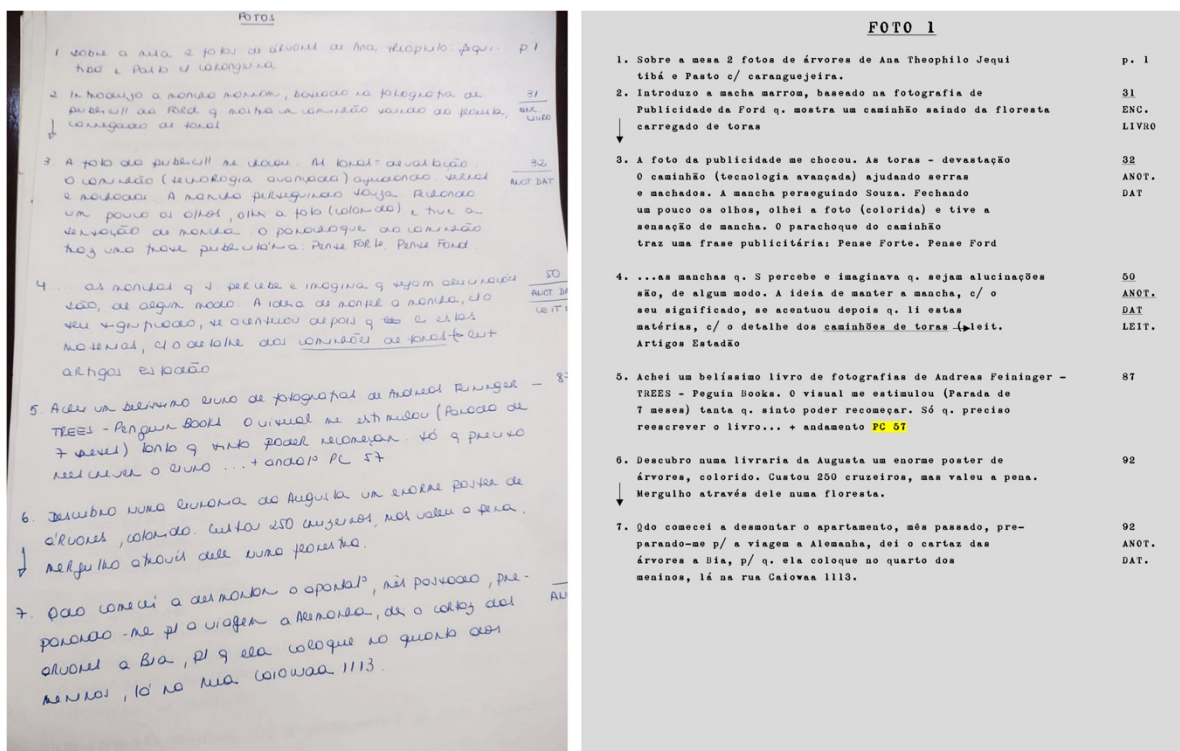 FOTOS
1 sobre a mesa 2 fotos de árvores de Ana Theophilo: Jequi- p. 1
tibá e Pasto c/ caranguejeira
2 Introduzo a mancha marrom, baseado na fotografia de 31
publicid/ da Ford q mostra um caminhão saindo da floresta, ENC
carregado de toras LIVRO
3 A foto da publicid/ me chocou. As toras = devastação. 32
O caminhão (tecnologia avançada) ajudando serras ANOT DAT
e machados. A mancha perseguindo Souza. Fechando
um pouco os olhos, olhei a foto (colorida) e tive a
sensação de mancha. O parachoque do caminhão
traz uma frase publicitária: Pense Forte. Pense Ford.
4 ... as manchas q S percebe e imagina q sejam alucinações 50
são, de algum modo. A ideia de manter a mancha, c/o ANOT DA
seu significado, se acentuou depois q li estas LEIT
matérias, c/o detalhe dos caminhões de toras leit
artigos Estadão
5 Achei um belíssimo livro de fotografias de Andreas Feininger – 87
TREES – Penguin Books O visual me estimulou (Parada de
7 meses) tanto q sinto poder recomeçar. Só q preciso
reescrever o livro ... + andatº PC 57
6. Descubro numa livraria da Augusta um enorme poster de
árvores, colorido. Custou 250 cruzeiros, mas valeu a pena.
Mergulho através dele numa floresta.
7. Qdo comecei a desmontar o apartatº, mês passado, pre-
parando-me p/ a viagem a Alemanha, dei o cartaz das AN
árvores a Bia, p/ q ela coloque no quarto dos
meninos, lá na rua Caiowaa 1113.
FOTO 1
1. Sobre a mesa 2 fotos de árvores de Ana Theophilo Jequi p. 1
tibá e Pasto c/ caranguejeira.
2. Introduzo a macha marrom, baseado na fotografia de 31
Publicidade da Ford q. mostra um caminhão saindo da floresta ENC.
carregado de toras LIVRO
3. A foto da publicidade me chocou. As toras - devastação 32
O caminhão (tecnologia avançada) ajudando serras ANOT.
e machados. A mancha perseguindo Souza. Fechando DAT
um pouco os olhos, olhei a foto (colorida) e tive a
sensação de mancha. O parachoque do caminhão
traz uma frase publicitária: Pense Forte. Pense Ford
4. ...as manchas q. S percebe e imaginava q. sejam alucinações 50
são, de algum modo. A ideia de manter a mancha, c/ o ANOT.
seu significado, se acentuou depois q. li estas DAT
matérias, c/ o detalhe dos caminhões de toras (leit. LEIT.
Artigos Estadão
5. Achei um belíssimo livro de fotografias de Andreas Feininger – 87
TREES - Peguin Books. O visual me estimulou (Parada de
7 meses) tanta q. sinto poder recomeçar. Só q. preciso
reescrever o livro... + andamento PC 57
6. Descubro numa livraria da Augusta um enorme poster de 92
árvores, colorido. Custou 250 cruzeiros, mas valeu a pena.
Mergulho através dele numa floresta.
7. Qdo comecei a desmontar o apartamento, mês passado, pre- 92
parando-me p/ a viagem a Alemanha, dei o cartaz das ANOT.
árvores a Bia, p/ q. ela coloque no quarto dos DAT.
meninos, lá na rua Caiowaa 1113.